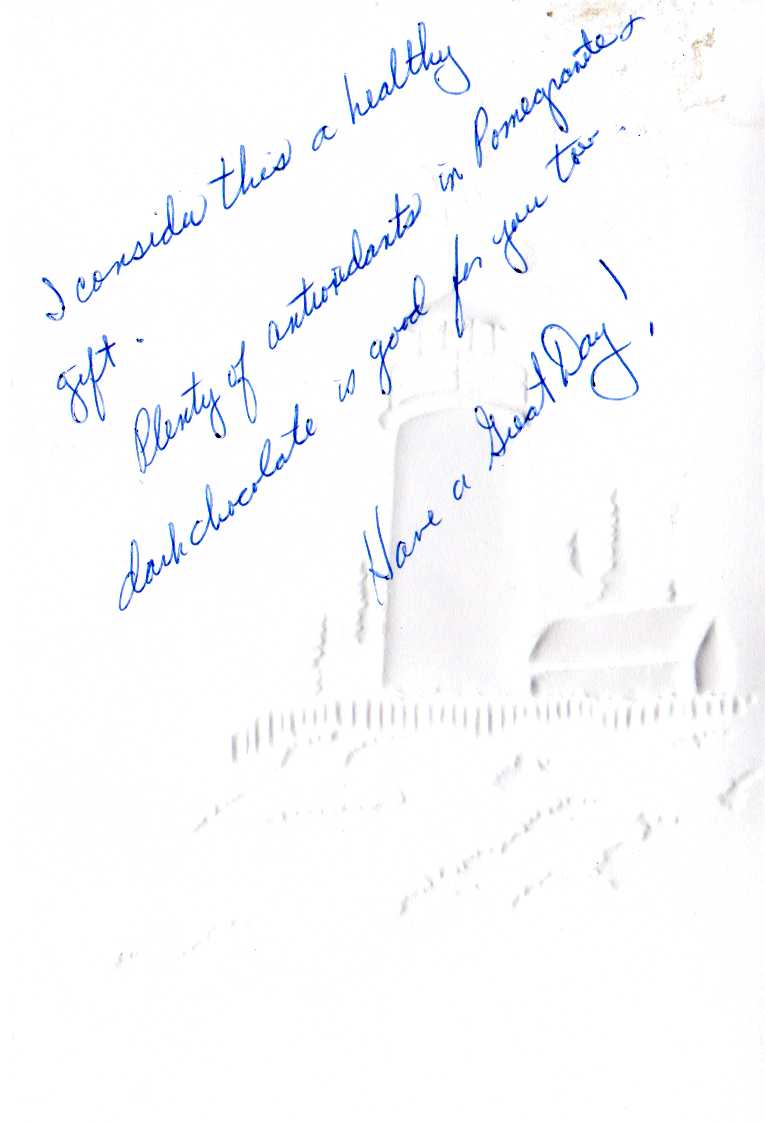 I consider this a healthy
gift.
Plenty of antioxidants in Pomegranate &
dark chocolate is good for you too.
Have a Great Day!